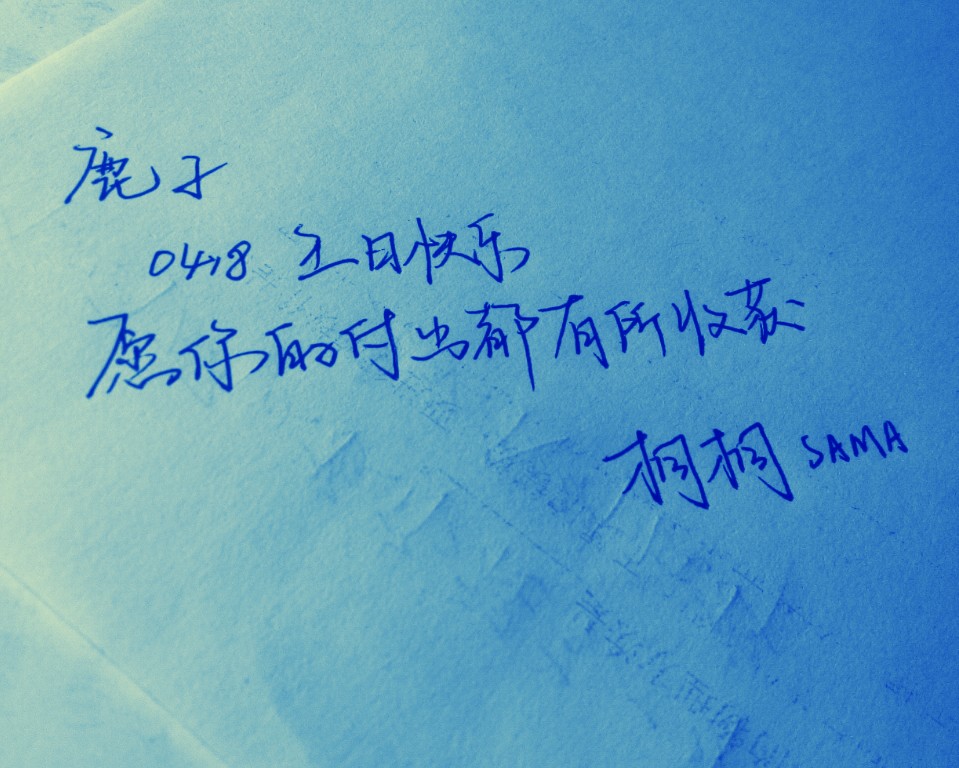 鹿子
0418 生日快乐
愿你的付出都有所收获
桐桐 SAMA